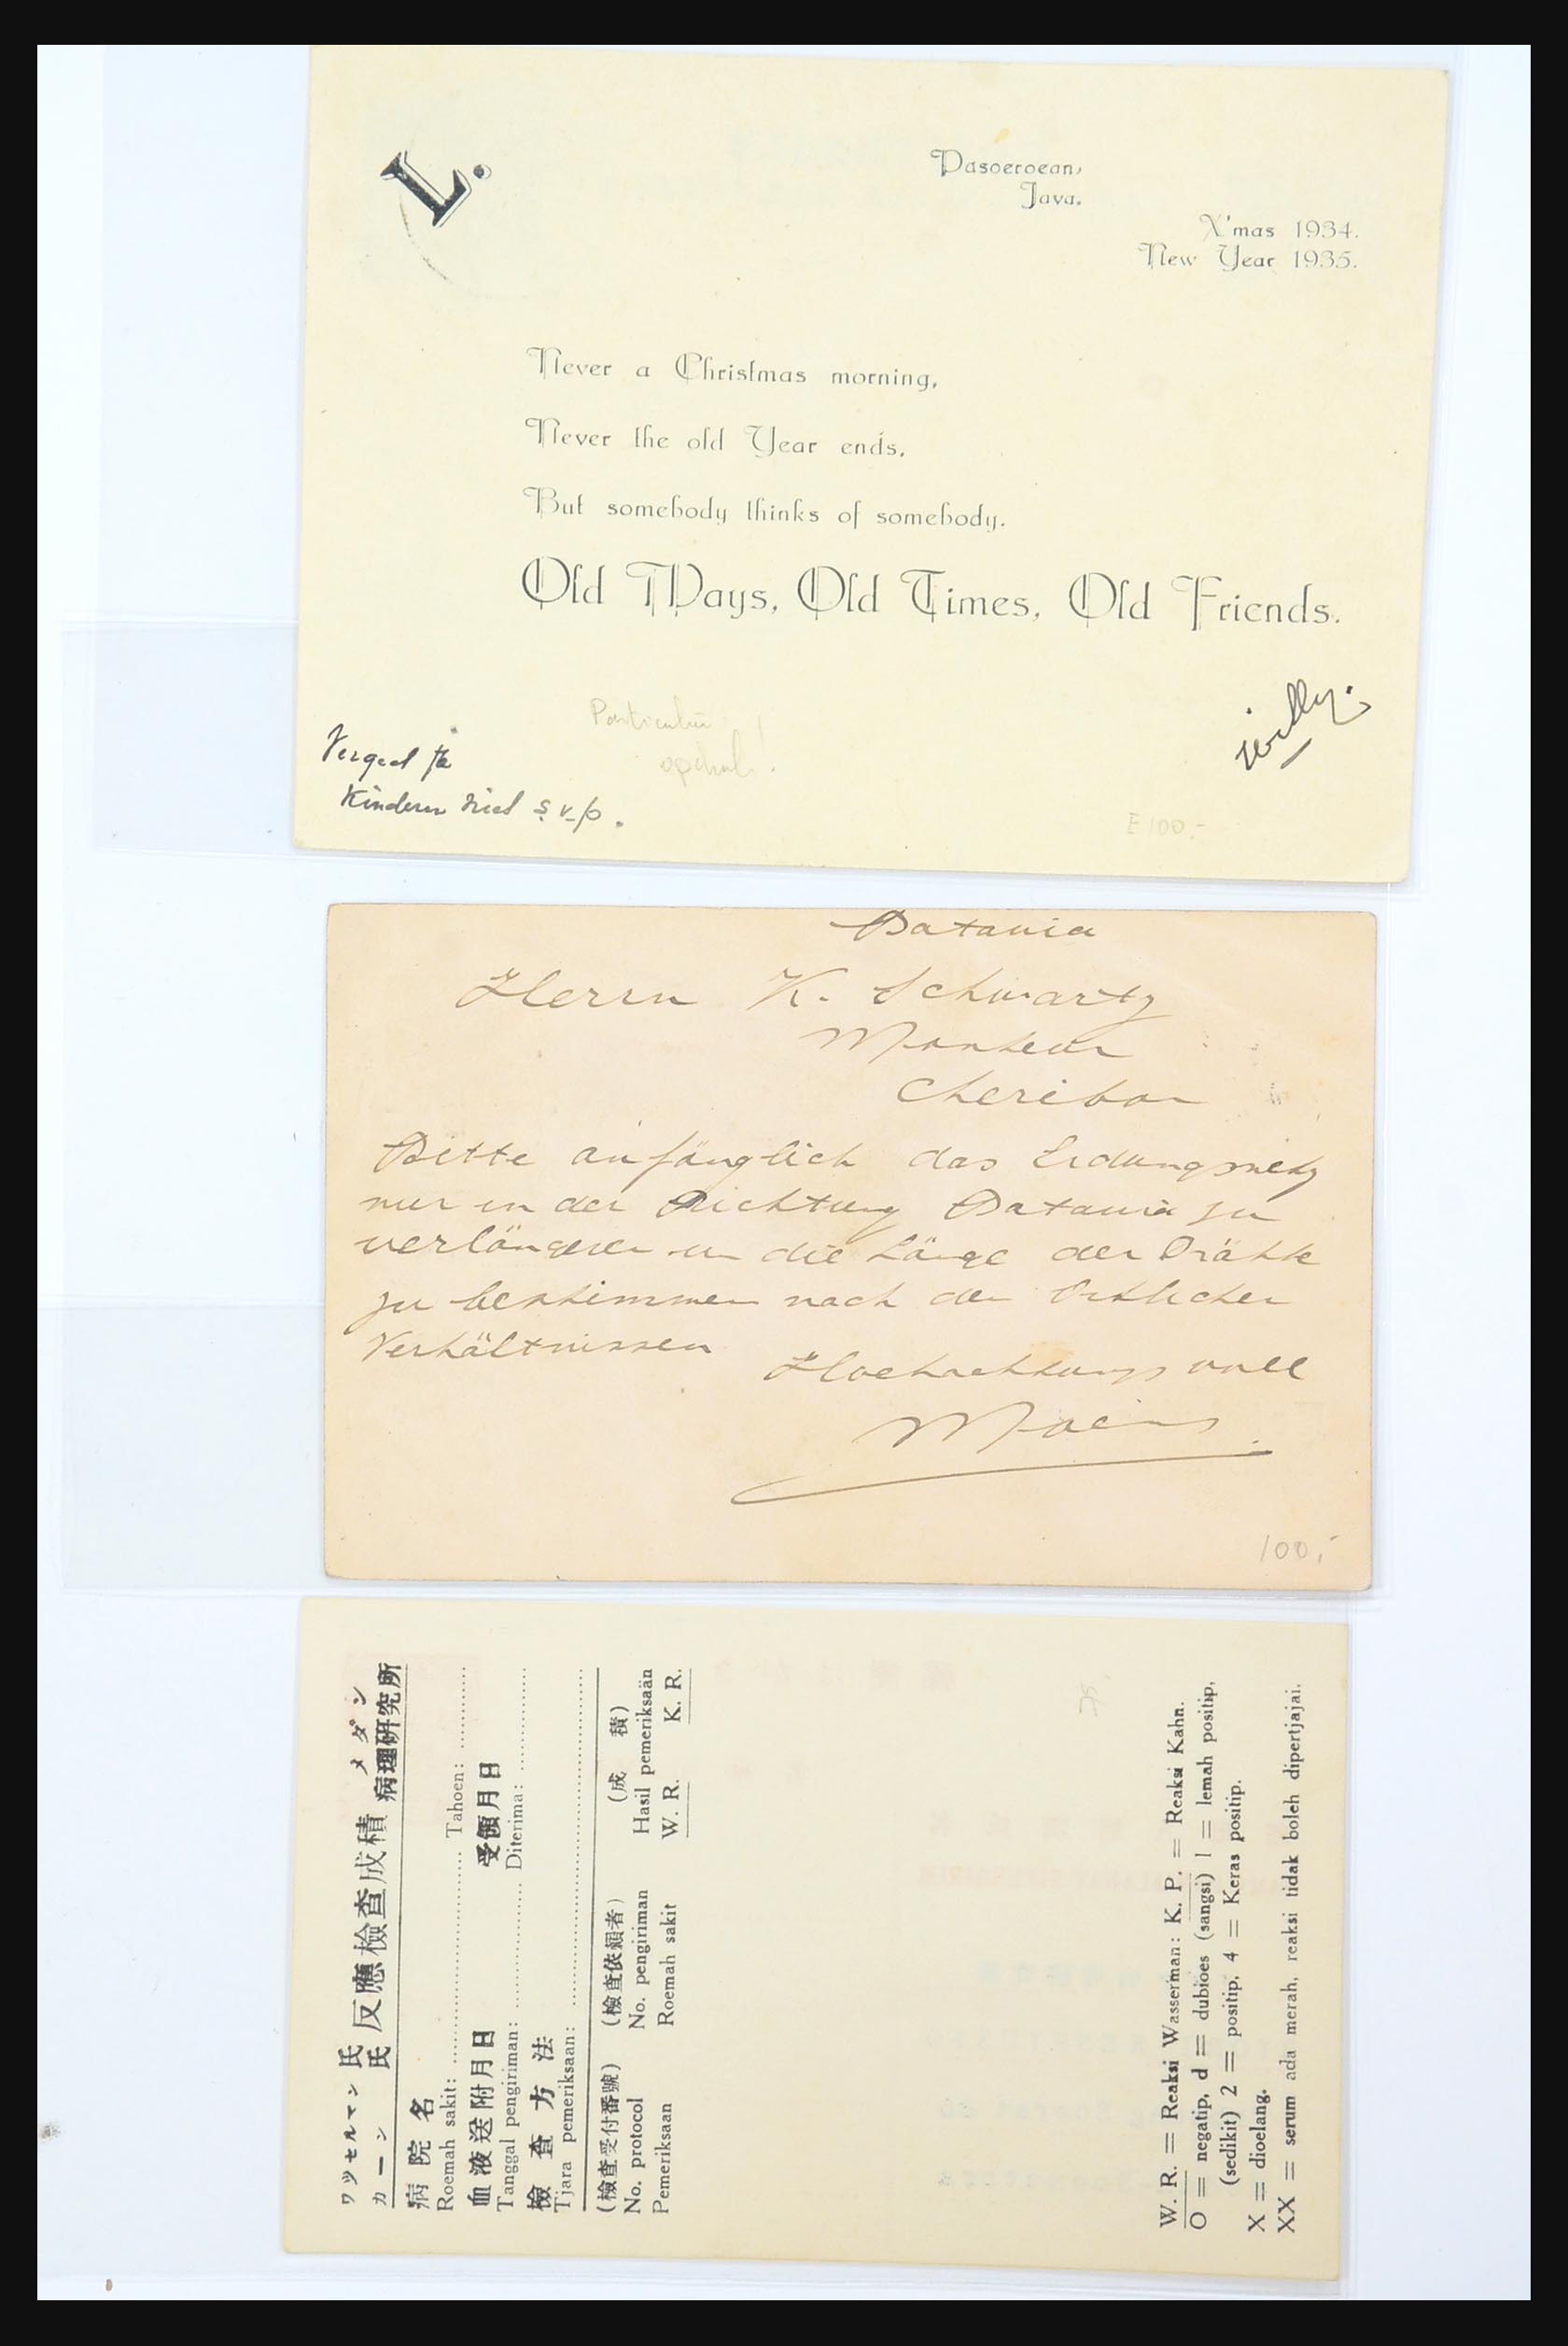 L.
Pasoeroean,
Java.
X'mas 1934.
New Year 1935.
Never a Christmas morning,
Never the old Year ends,
But somebody thinks of somebody.
Old Ways, Old Times, Old Friends.
Willy.
Vergeet de
Kinderen niet s.v.p.
E 100.-
Batavia
Herrn K. Schwartz
Monteur
Cheribon
Bitte anfänglich das Erdungsnetz
nur in der Richtung Batavia zu
verlängeren un die Länge der Drähte
zu bestimmen nach den Örtlichen
Verhältnissen
Hochachtungsvoll
100,-
ワツセルマン氏
カーン氏
反應檢查成積
メダン
病理研究所
病院名
Roemah sakit: Tahoen:
血液送附月日 受領月日
Tanggal pengiriman: Diterima:
檢查方法
Tjara pemeriksaan:
(檢查受付番號) (檢查依賴者) (成積)
No. protocol No. pengiriman Hasil pemeriksaän
Pemeriksaan Roemah sakit W. R. K. R.
75
W. R. = Reaksi Wasserman: K. P. = Reaksi Kahn.
O = negatip, d = dubioes (sangsi) 1 = lemah positip,
(sedikit) 2 = positip, 4 = Keras positip.
X = dioelang.
XX = serum ada merah, reaksi tidak boleh dipertjajai.